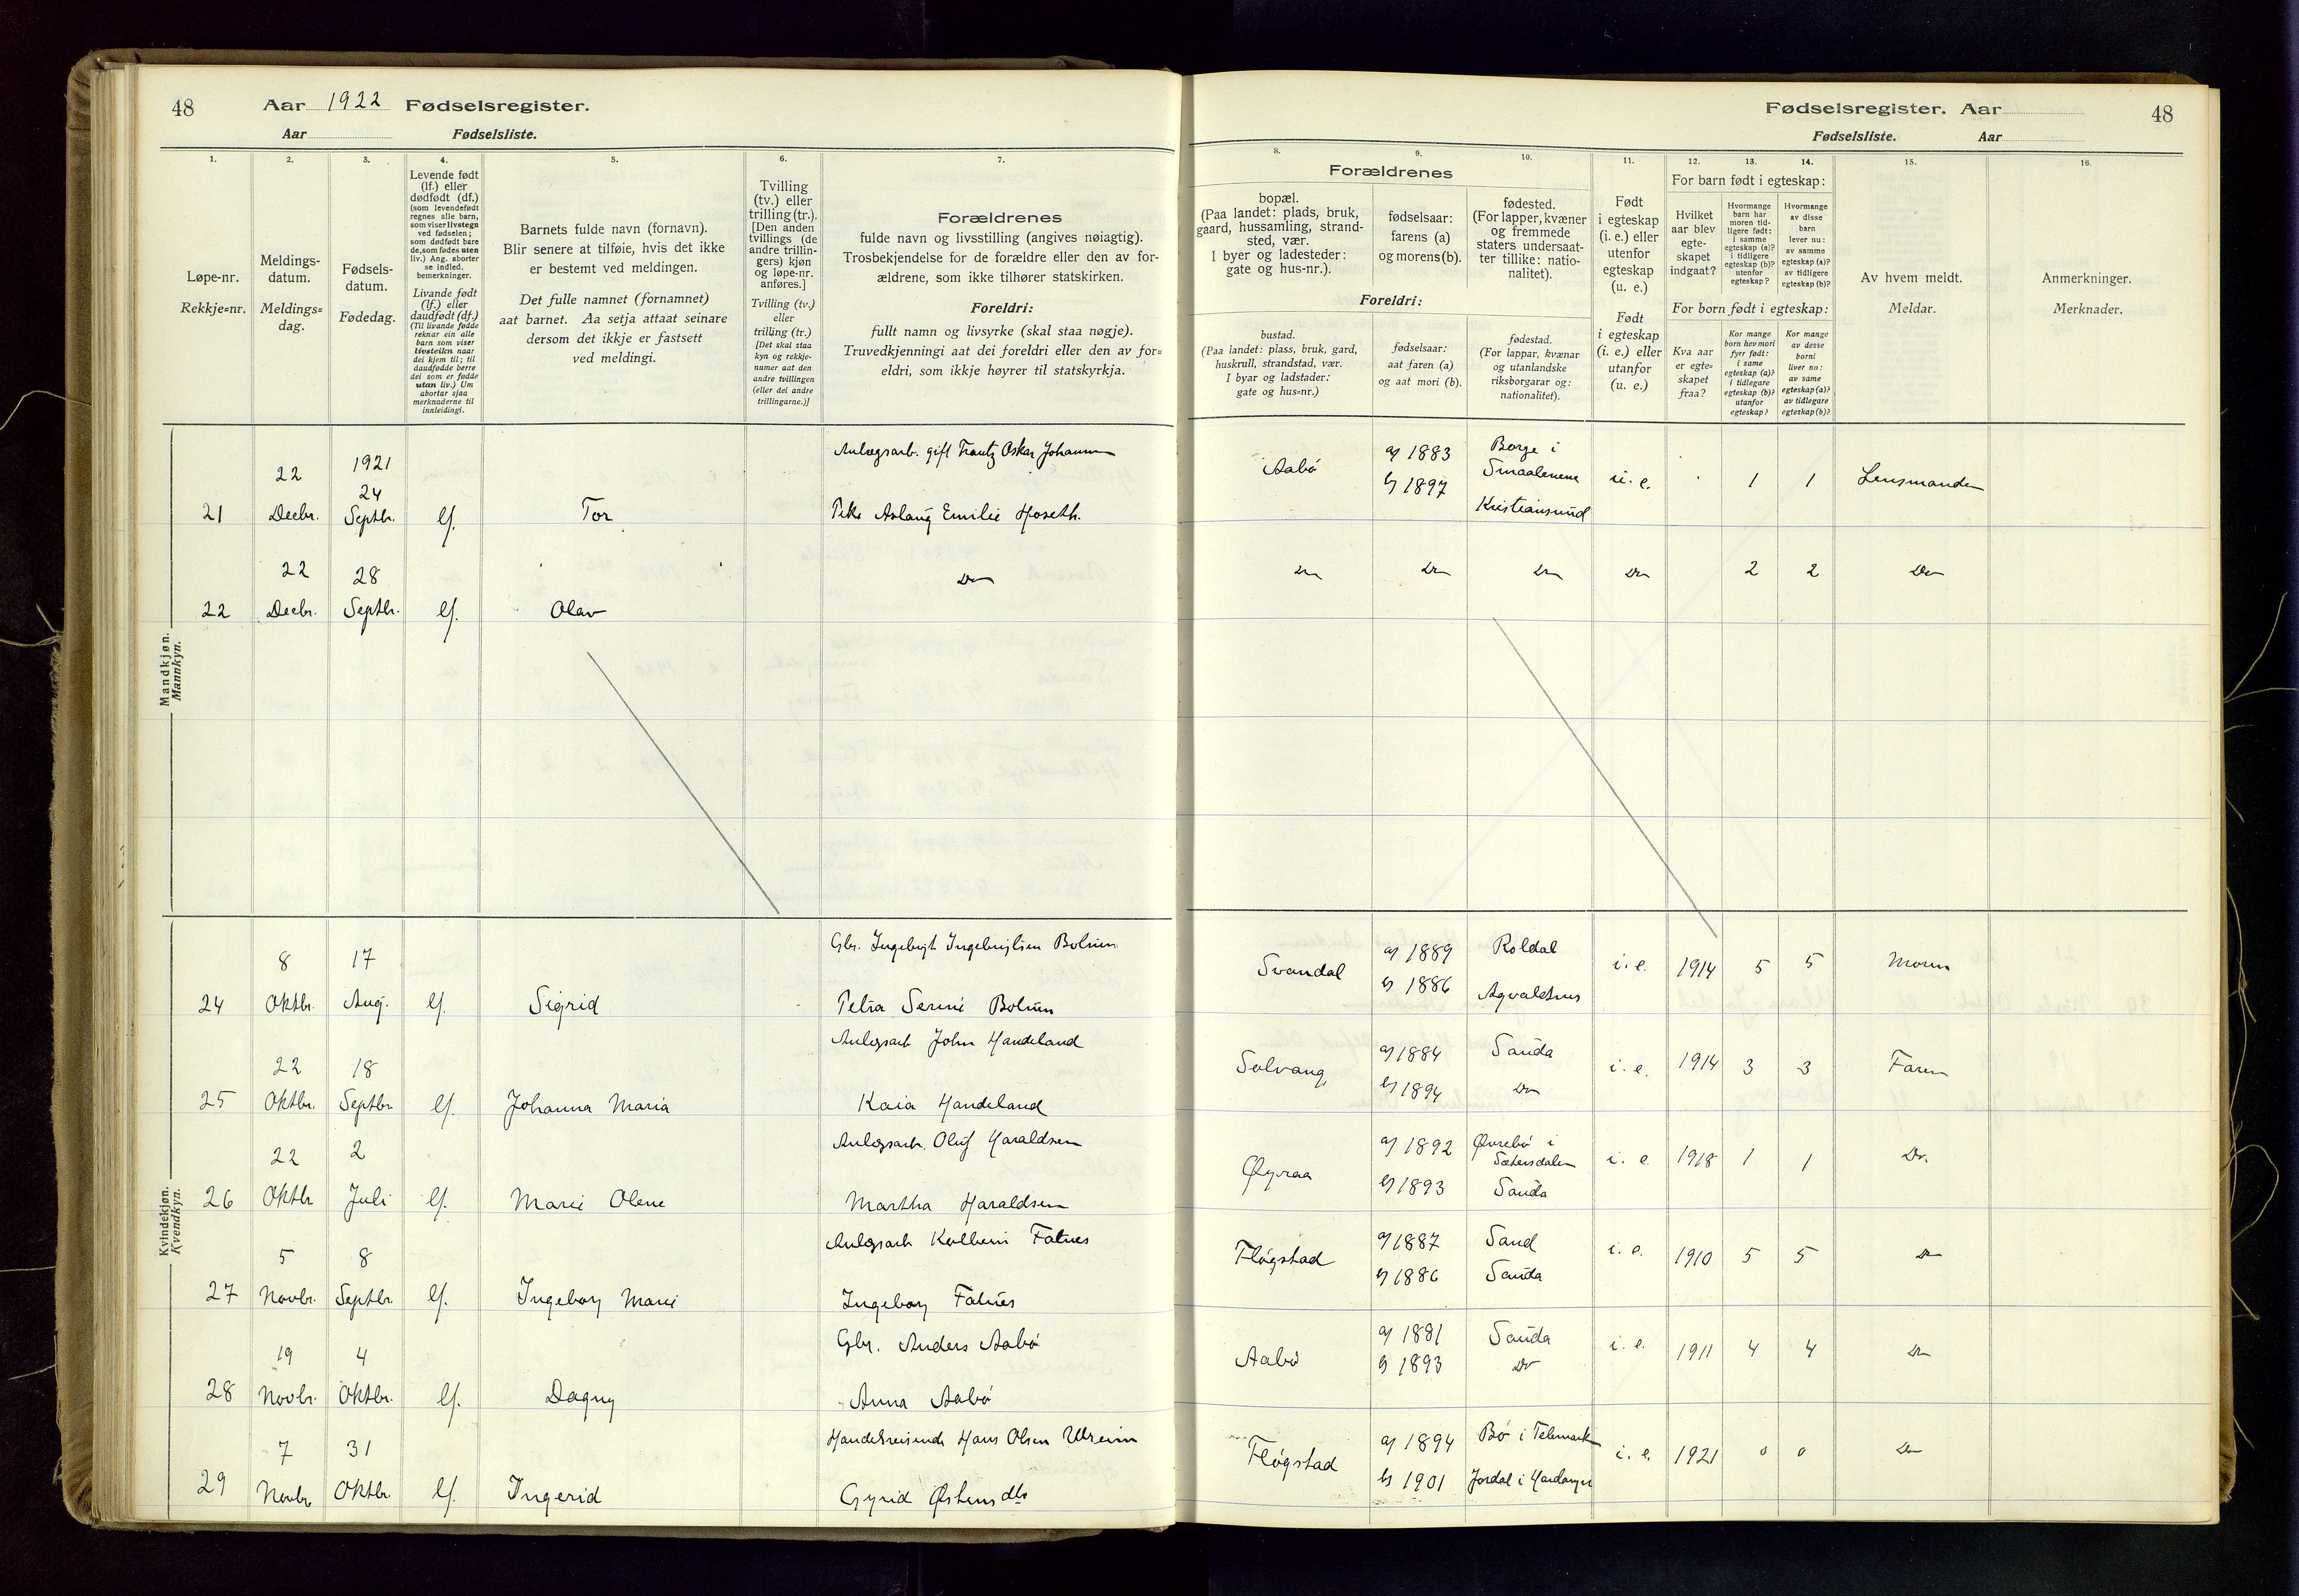 48 Aar 1922 Fødselsregister.
Aar Fødselsliste.
Fødselsregister. Aar 48
Fødselsliste. Aar
1. 2. 3. 4. 5. 6. 7.
8. 9. 10. 11. 12. 13. 14. 15. 16.
Løpe-nr.
Rekkje=nr.
Meldings-
datum.
Meldings=
dag.
Fødsels-
datum.
Fødedag.
Levende født
(lf.) eller
dødfødt (df.)
(som levendefødt
regnes alle barn,
som viser livstegn
ved fødselen;
som dødfødt bare
de, som fødes uten
liv.) Ang. aborter
se indled.
bemerkninger.
Livande født
(lf.) eller
daudfødt (df.)
(Til livande fødde
reknar ein alle
barn som viser
livsteikn naar
dei kjem til; til
daudfødde berre
dei som er fødde
utan liv.) Um
abortar sjaa
merknaderne til
innleidingi.
Barnets fulde navn (fornavn).
Blir senere at tilføie, hvis det ikke
er bestemt ved meldingen.
Det fulle namnet (fornamnet)
aat barnet. Aa setja attaat seinare
dersom det ikkje er fastsett
ved meldingi.
Tvilling
(tv.) eller
trilling (tr.).
[Den anden
tvillings (de
andre trillin-
gers) kjøn
og løpe-nr.
anføres.]
Tvilling (tv.)
eller
trilling (tr.)
[Det skal staa
kyn og rekkje-
numer aat den
andre tvillingen
(eller dei andre
trillingarne.)]
Forældrenes
fulde navn og livsstilling (angives nøiagtig).
Trosbekjendelse for de forældre eller den av for-
ældrene, som ikke tilhører statskirken.
Foreldri:
fullt namn og livsyrke (skal staa nøgje).
Truvedkjenningi aat dei foreldri eller den av for=
eldri, som ikkje høyrer til statskyrkja.
Forældrenes
bopæl.
(Paa landet: plads, bruk,
gaard, hussamling, strand-
sted, vær.
I byer og ladesteder:
gate og hus-nr.).
fødselsaar:
farens (a)
og morens (b).
fødested.
(For lapper, kvæner
og fremmede
staters undersaat-
ter tillike: natio-
nalitet).
Foreldri:
bustad.
(Paa landet: plass, bruk, gard,
huskrull, strandstad, vær.
I byar og ladstader:
gate og hus=nr.)
fødselsaar:
aat faren (a)
og aat mori (b).
fødestad.
(For lappar, kvænar
og utanlandske
riksborgarar og:
nationalitet).
Født
i egteskap
(i. e.) eller
utenfor
egteskap
(u. e.)
Født
i egteskap
(i. e.) eller
utanfor
(u. e.)
For barn født i egteskap:
Hvilket
aar blev
egte-
skapet
indgaat?
Hvormange
barn har
moren tid-
ligere født:
i samme
egteskap (a)?
i tidligere
egteskap (b)?
utenfor
egteskap?
Hvormange
av disse
barn
lever nu:
av samme
egteskap (a)?
av tidligere
egteskap (b)?
For born født i egteskap:
Kva aar
er egte=
skapet
fraa?
Kor mange
born hev mori
fyrr født:
i same
egteskap (a)?
i tidlegare
egteskap (b)?
utanfor
egteskap?
Kor mange
av desse
borni
liver no:
av same
egteskap (a)?
av tidlegare
egteskap (b)?
Av hvem meldt.
Meldar.
Anmerkninger.
Merknader.
Mandkjøn.
Mannkyn.
21 22 Decbr. 1921 24 Septbr. lf. Tor
Anlægsarb. gift Frantz Oskar Johansen
Aslaug Emilie Hoseth.
Aabø a) 1883 b) 1897 Borge i Smaalenene Kristiansund i. e. 1 1 Lensmanden
22 22 Decbr. 28 Septbr. lf. Olav Do
Do Do Do Do 2 2 Do
Kvindekjøn.
Kvendkyn.
24 8 Oktbr. 17 Aug. lf. Sigrid
Gbr.
Petra
Svandal a) 1889 b) 1886 Roldal i. e. 1914 5 5 Moren
25 22 Oktbr. 18 Septbr. lf. Johanna Maria
Anlegsarb John Handeland
Kaia Handeland
Solvang a) 1884 b) 1894 Sauda Do i. e. 1914 3 3 Faren
26 22 Oktbr 2 Juli lf. Marie Olene
Anlegsarb. Oluf Haraldsen
Martha Haraldsen
a) 1892 b) 1893 Øvrebø i Sætersdalen Sauda i. e. 1918 1 1 Do.
27 5 Novbr. 8 Septbr. lf. Ingeborg Marie
Anlegsarb Fatnes
Ingeborg Fatnes
Fløgstad a) 1887 b) 1886 Sand Sauda i. e. 1910 5 5 Do
28 19 Novbr. 4 Oktbr. lf. Dagny
Gbr. Anders Aabø
Anna Aabø
Aabø a) 1881 b) 1893 Sauda Do i. e. 1911 4 4 Do
29 7 Novbr 31 Oktbr. lf. Ingerid
Handelsreisende Hans Olsen
Gyrid Østensdtr
Fløgstad a) 1894 b) 1901 Bø i Telemark Jordal i Hardanger i. e. 1921 0 0 Do